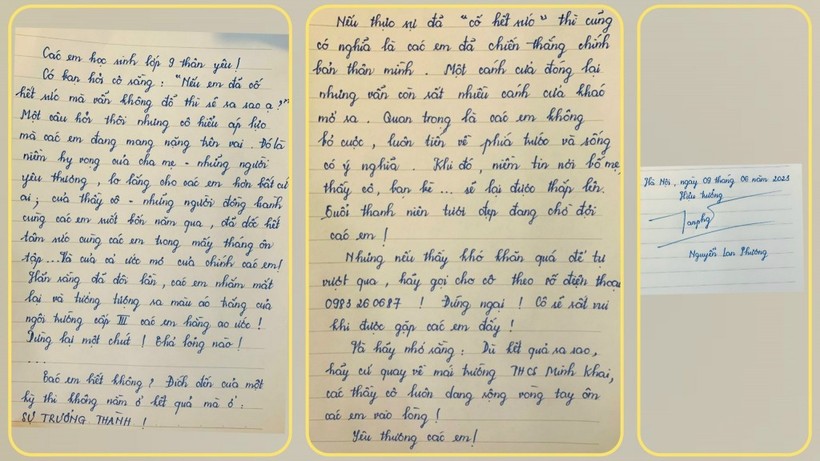 Các em học sinh lớp 9 thân yêu!
Có bạn hỏi cô rằng: "Nếu em đã cố
hết sức mà vẫn không đỗ thì sẽ ra sao ạ?"
Một câu hỏi thôi nhưng cô hiểu áp lực
mà các em đang mang nặng trên vai. Đó là
niềm hy vọng của cha mẹ - những người
yêu thương, lo lắng cho các em hơn bất cứ
ai; của thầy cô - những người đồng hành
cùng các em suốt bốn năm qua, đã dốc hết
tâm sức cùng các em trong mấy tháng ôn
tập... Và của cả ước mơ của chính các em!
Hẳn rằng đã đôi lần, các em nhắm mắt
lại và tưởng tượng ra màu áo trắng của
ngôi trường cấp III các em hằng ao ước!
Dừng lại một chút! Thả lỏng nào!
......
Các em biết không? Đích đến của một
kỳ thi không nằm ở kết quả mà ở:
SỰ TRƯỞNG THÀNH!
Nếu thực sự đã "cố hết sức" thì cũng
có nghĩa là các em đã chiến thắng chính
bản thân mình. Một cánh cửa đóng lại
nhưng vẫn còn rất nhiều cánh cửa khác
mở ra. Quan trọng là các em không
bỏ cuộc, luôn tiến về phía trước và sống
có ý nghĩa. Khi đó, niềm tin nơi bố mẹ,
thầy cô, bạn bè ... sẽ lại được thắp lên.
Tuổi thanh niên tươi đẹp đang chờ đợi
các em!
Nhưng nếu thấy khó khăn quá để tự
vượt qua, hãy gọi cho cô theo số điện thoại
0983260687! Đừng ngại! Cô sẽ rất vui
khi được gặp các em đấy!
Và hãy nhớ rằng: Dù kết quả ra sao,
hãy cứ quay về mái trường THCS Minh Khai,
các thầy cô luôn dang rộng vòng tay ôm
các em vào lòng!
Yêu thương các em!
Hà Nội, ngày 09 tháng 06 năm 2023
Hiệu trưởng
Nguyễn Lan Phương